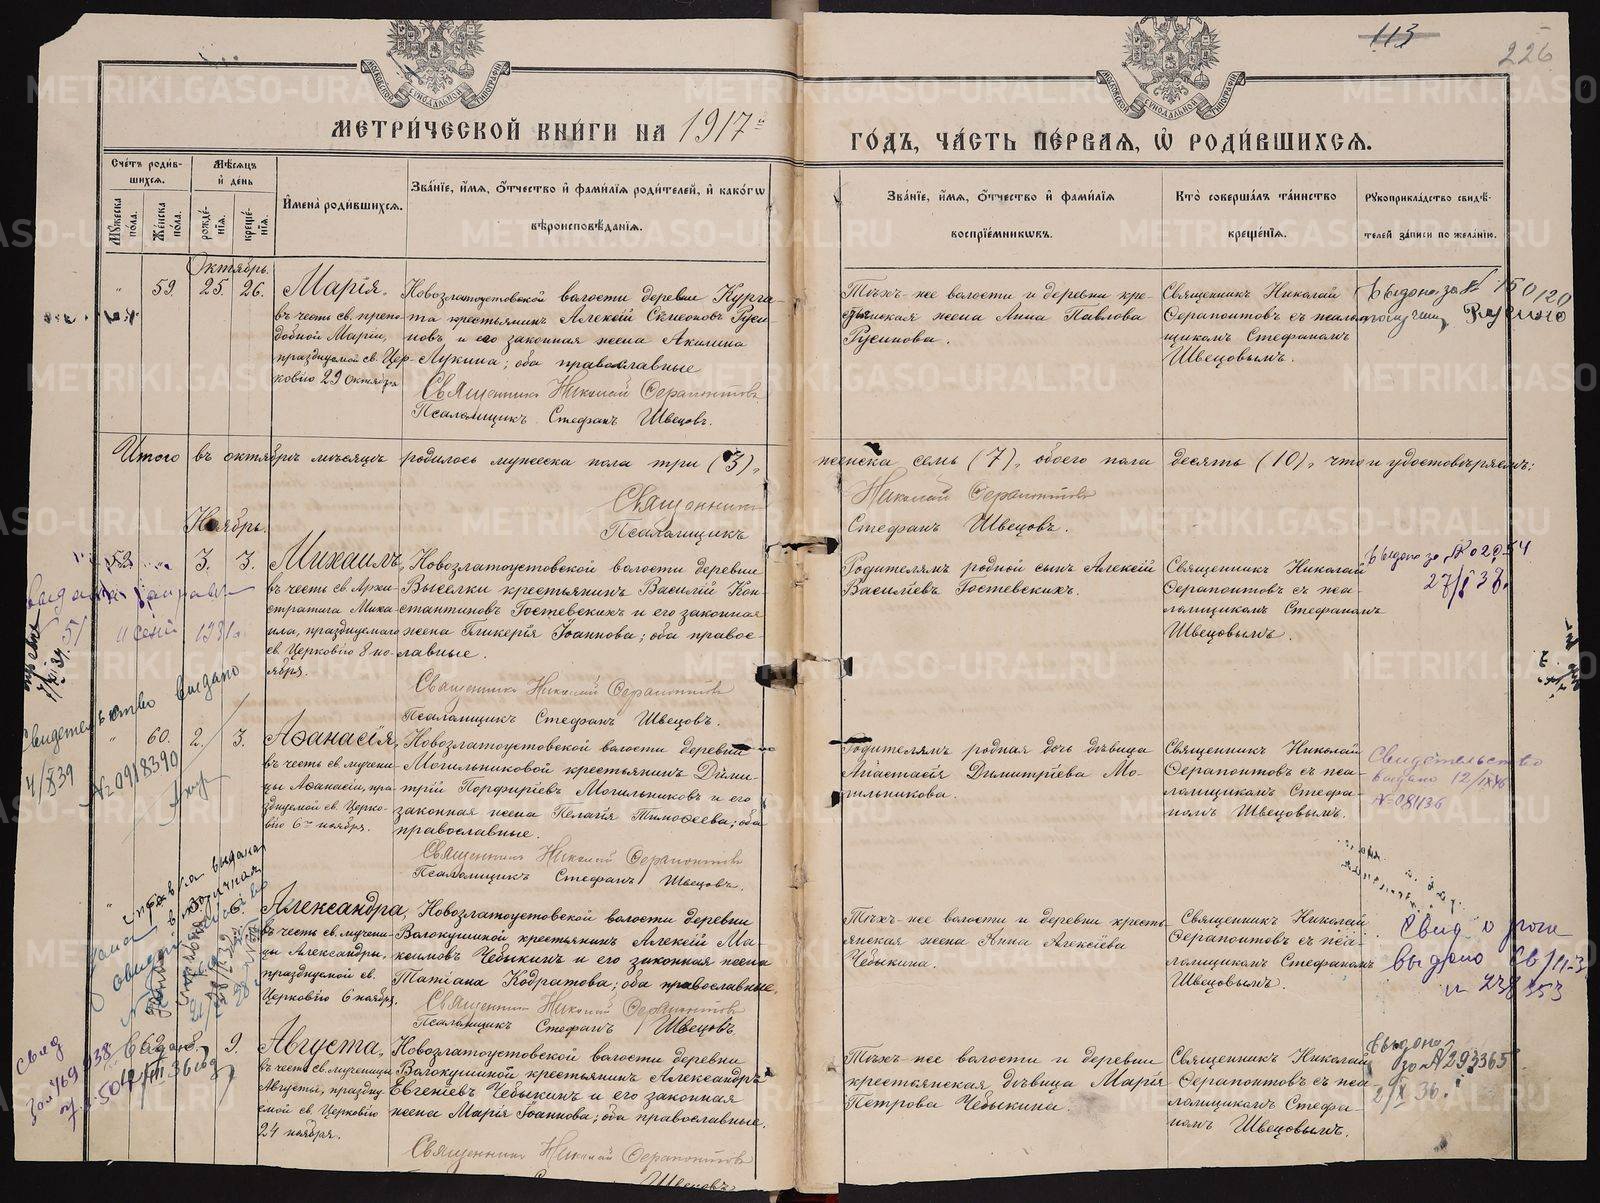 113
226
МЕТРИ́ЧЕСКОЙ КНИ́ГИ НА 1917й
ГО́ДЪ, ЧА́СТЬ ПЕ́РВАЯ, Ѡ҆ РОДИ́ВШИХСЯ.
Сче́тъ роди́в-
шихся.
Мѣ́сяцъ
и҆ де́нь
Мꙋ́жеска
по́ла.
Же́нска
по́ла.
рожде́-
нїя.
креще́-
нїя.
И҆мена̀ роди́вшихся.
Зва́нїе, и҆́мя, ѻ҆́тчество и҆ фами́лїя роди́телей, и҆ како́гѡ
вѣроисповѣ́данїя.
Зва́нїе, и҆́мя, ѻ҆́тчество и҆ фами́лїя
воспрїе́мникѡвъ.
Кто̀ соверша́лъ та́инство
креще́нїя.
Рꙋкоприкла́дство свидѣ́-
телей за́писи по жела́нїю.
Октябрь.
" 59. 25. 26.
Марія,
въ честь св. препо-
добной Маріи,
празднуемой св. Цер-
ковію 29 октября
Новозлатоустовской волости деревни Курга-
та крестьянинъ Алексій Симеоновъ Руси-
новъ и его законная жена Акилина
Лукина; оба православные
Священникъ Николай Серапонтовъ
Псаломщикъ Стефанъ Швецовъ.
Тѣхъ-же волости и деревни кре-
стьянская жена Анна Павлова
Русинова.
Священникъ Николай
Серапонтовъ съ псалом-
щикомъ Стефаномъ
Швецовымъ.
Итого въ октябрѣ мѣсяцѣ родилось мужеска пола три (3), женска семь (7), обоего пола десять (10), что и удостовѣряемъ:
Священникъ Николай Серапонтовъ
Псаломщикъ Стефанъ Швецовъ.
Ноябрь.
53 " 3. 3.
Михаилъ,
въ честь св. Архи-
стратига Миха-
ила, празднуемаго
св. Церковію 8 но-
ября.
Новозлатоустовской волости деревни
Выселки крестьянинъ Василій Кон-
стантиновъ Гостевскихъ и его законная
жена Гликерія Іоаннова; оба право-
славные.
Священникъ Николай Серапонтовъ
Псаломщикъ Стефанъ Швецовъ.
Родителямъ родной сынъ Алексій
Василіевъ Гостевскихъ.
Священникъ Николай
Серапонтовъ съ пса-
ломщикомъ Стефаномъ
Швецовымъ.
Свидетельство выдано
4/X 39
№ 0918390
" 60. 2. 3.
Аѳанасія,
въ честь св. мучени-
цы Аѳанасіи, пра-
зднуемой св. Церко-
вію 6го ноября.
Новозлатоустовской волости деревни
Могильниковой крестьянинъ Дими-
трій Порфиріевъ Могильниковъ и его
законная жена Пелагія Тимоѳеева; оба
православные.
Священникъ Николай Серапонтовъ
Псаломщикъ Стефанъ Швецовъ.
Родителямъ родная дочь дѣвица
Анастасія Димитріева Мо-
гильникова.
Священникъ Николай
Серапонтовъ съ пса-
ломщикомъ Стефа-
номъ Швецовымъ.
Свидетельство
выдано 12/IX46
№ 081136
Александра,
въ честь св. мучени-
цы Александры,
празднуемой св.
Церковію 6 ноября.
Новозлатоустовской волости деревни
Волокушиной крестьянинъ Алексій Ма-
ксимовъ Чебыкинъ и его законная жена
Татіана Кодратова; оба православные.
Священникъ Николай Серапонтовъ
Псаломщикъ Стефанъ Швецовъ
Тѣхъ-же волости и деревни кресть-
янская жена Анна Алексіева
Чебыкина.
Священникъ Николай
Серапонтовъ съ пса-
ломщикомъ Стефаномъ
Швецовымъ.
9.
Августа,
въ честь св. мученицы
Августы, праздну-
емой св. Церковію
24 ноября.
Новозлатоустовской волости деревни
Волокушиной крестьянинъ Александръ
Евгеніевъ Чебыкинъ и его законная
жена Марія Іоаннова; оба православные.
Священникъ Николай Серапонтовъ
Швецовъ
Тѣхъ-же волости и деревни
крестьянская дѣвица Марія
Петрова Чебыкина.
Священникъ Николай
Серапонтовъ съ пса-
ломщикомъ Стефа-
номъ Швецовымъ.
Выдано
за № 293365
2/X 36.
METRIKI.GASO-URAL.RU